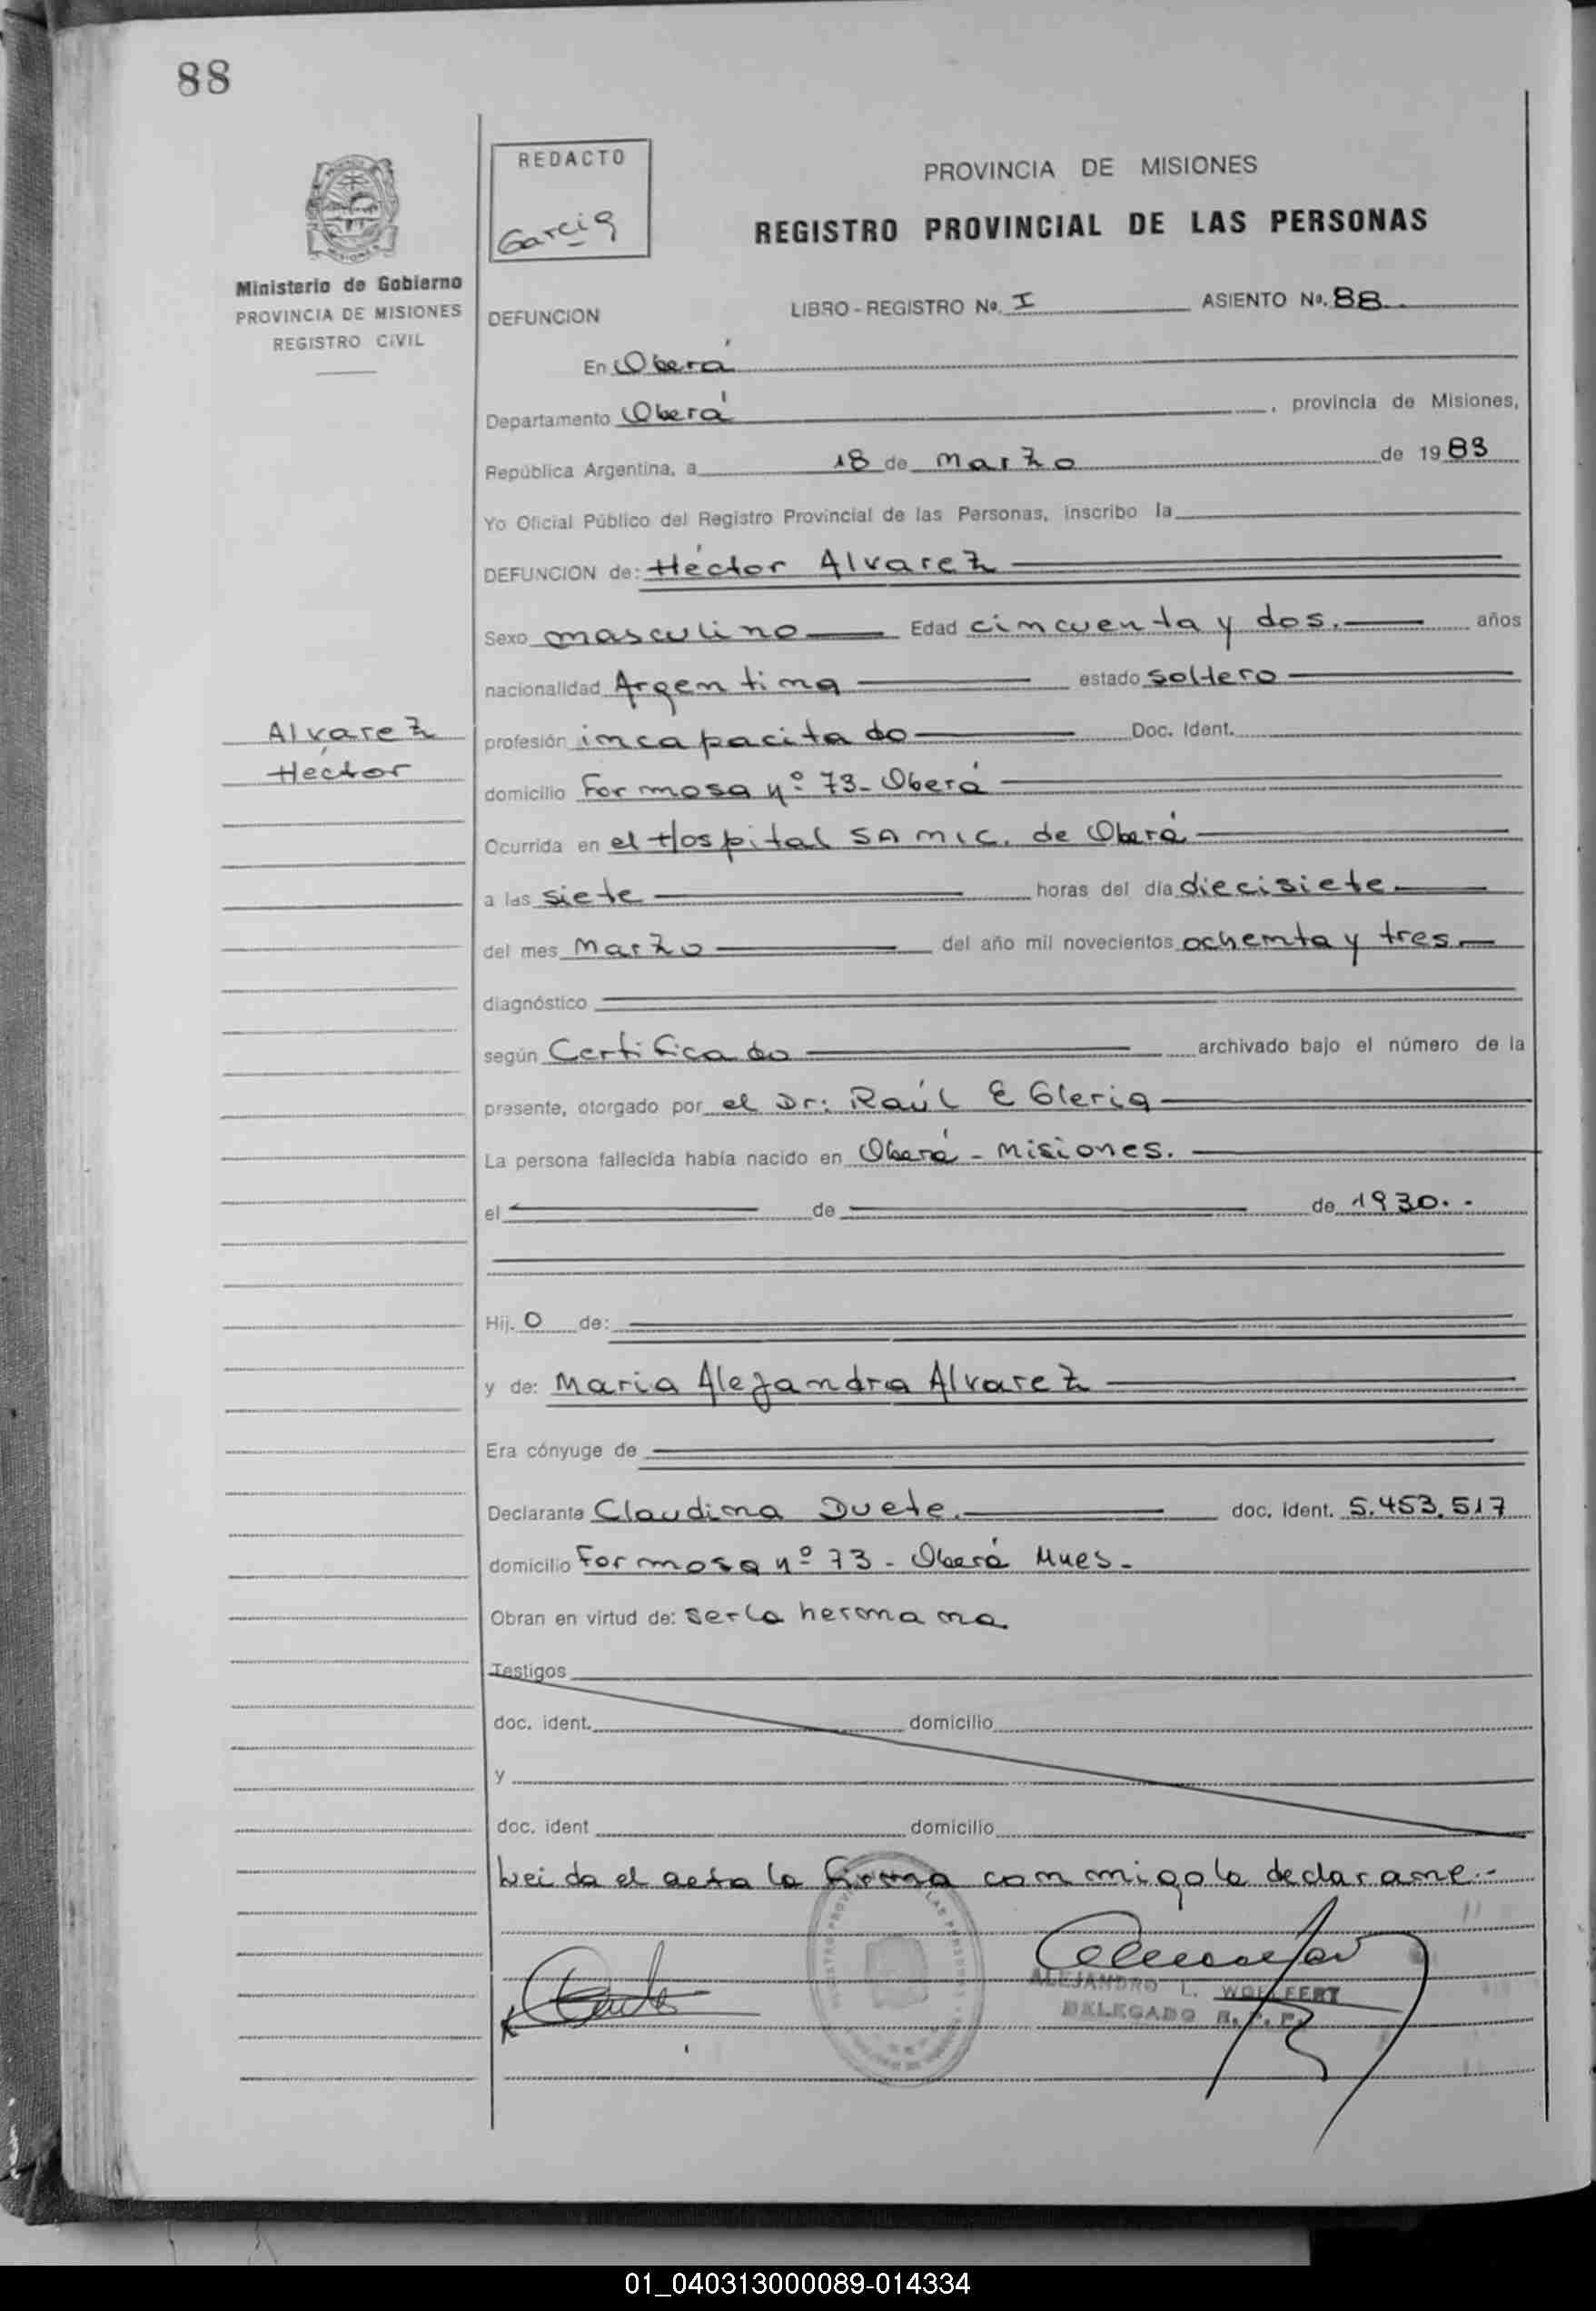 88
REDACTO
Garcia
PROVINCIA DE MISIONES
REGISTRO PROVINCIAL DE LAS PERSONAS
Ministerio de Gobierno
PROVINCIA DE MISIONES
REGISTRO CIVIL
DEFUNCION LIBRO - REGISTRO Nº. I ASIENTO Nº. 88
En Oberá
Departamento Oberá, provincia de Misiones,
República Argentina, a 18 de Marzo de 1983
Yo Oficial Público del Registro Provincial de las Personas, inscribo la
DEFUNCION de: Héctor Alvarez
Sexo masculino Edad cincuenta y dos. años
nacionalidad Argentina estado soltero
Alvarez
Héctor
profesión incapacitado Doc. Ident.
domicilio Formosa nº 73- Oberá
Ocurrida en el Hospital SAMIC. de Oberá
a las siete horas del día diecisiete
del mes Marzo del año mil novecientos ochenta y tres
diagnóstico
según Certificado archivado bajo el número de la
presente, otorgado por el Dr: Raúl E Gleria
La persona fallecida había nacido en Oberá - Misiones.
el de de 1930.-
Hij. o de:
y de: Maria Alejandra Alvarez
Era cónyuge de
Declarante Claudina Duete. doc. ident. 5.453.517
domicilio Formosa nº 73 - Oberá Mnes-
Obran en virtud de: serla hermana
Testigos
doc. ident. domicilio
y
doc. ident domicilio
Leida el acta la firma conmigo la declarane.-
ALEJANDRO L. WOLFFERT
DELEGADO R. P. P.
01_040313000089-014334